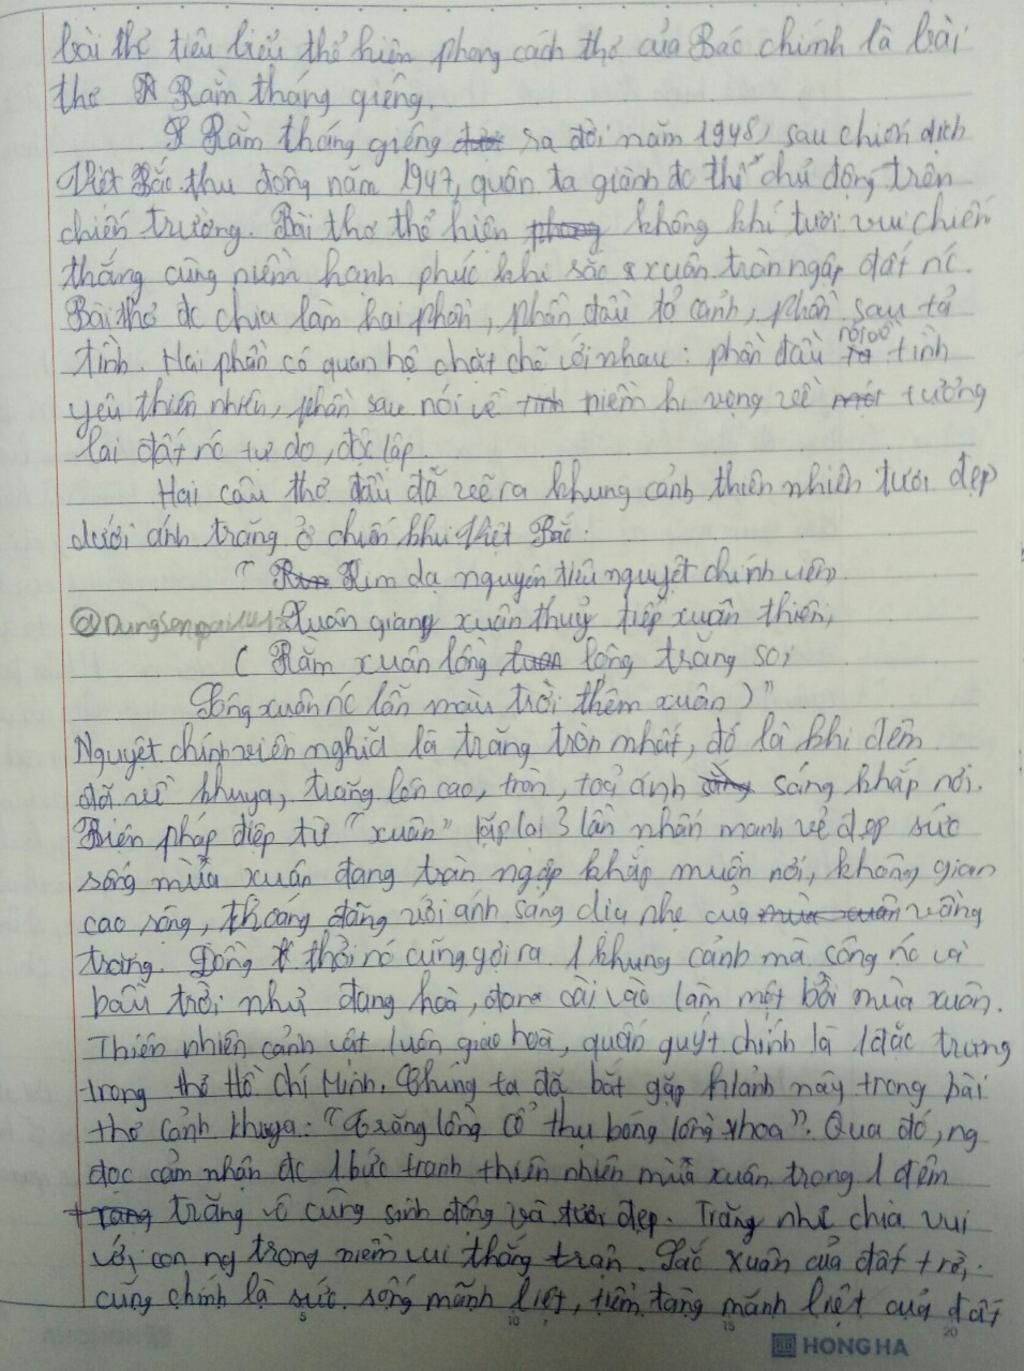 bài thơ tiêu biểu thể hiện phong cách thơ của Bác chính là bài
thơ Rằm tháng giêng.
Rằm tháng giêng ra đời năm 1948, sau chiến dịch
Việt Bắc thu đông năm 1947, quân ta giành đc thế chủ động trên
chiến trường. Bài thơ thể hiện không khí tươi vui chiến
thắng cùng niềm hạnh phúc khi sắc xuân tràn ngập đất nc.
Bài thơ đc chia làm hai phần, phần đầu tả cảnh, phần sau tả
tình. Hai phần có quan hệ chặt chẽ với nhau: phần đầu tình
yêu thiên nhiên, phần sau nói về niềm hi vọng về tương
lai đất nc tự do, độc lập.
Hai câu thơ đầu đã vẽ ra khung cảnh thiên nhiên tươi đẹp
dưới ánh trăng ở chiến khu Việt Bắc.
" Kim dạ nguyên tiêu nguyệt chính viên
Xuân giang xuân thuỷ tiếp xuân thiên,
( Rằm xuân lồng lộng trăng soi
Sông xuân nc lẫn màu trời thêm xuân )"
Nguyệt chính viên nghĩa là trăng tròn nhất, đó là khi đêm
đã về khuya, trăng lên cao, tròn, toả ánh sáng khắp nơi.
Biện pháp điệp từ "xuân" lặp lại 3 lần nhấn mạnh vẻ đẹp sức
sống mùa xuân đang tràn ngập khắp muôn nơi, không gian
cao rộng, thoáng đãng với ánh sáng dịu nhẹ của vầng
trăng. Đồng thời nó cũng gợi ra 1 khung cảnh mà sông nc và
bầu trời như đang hoà, đang cài vào làm một bởi mùa xuân.
Thiên nhiên cảnh vật luôn giao hoà, quấn quýt chính là 1 đặc trưng
trong thơ Hồ Chí Minh. Chúng ta đã bắt gặp h/ảnh này trong bài
thơ Cảnh khuya: "Trăng lồng cổ thụ bóng lồng hoa". Qua đó, ng
đọc cảm nhận đc 1 bức tranh thiên nhiên mùa xuân trong 1 đêm
trăng vô cùng sinh động và tươi đẹp. Trăng như chia vui
với con ng trong niềm vui thắng trận. Sắc xuân của đất trời
cũng chính là sức sống mãnh liệt, tiềm tàng mãnh liệt của đất
HONG HA